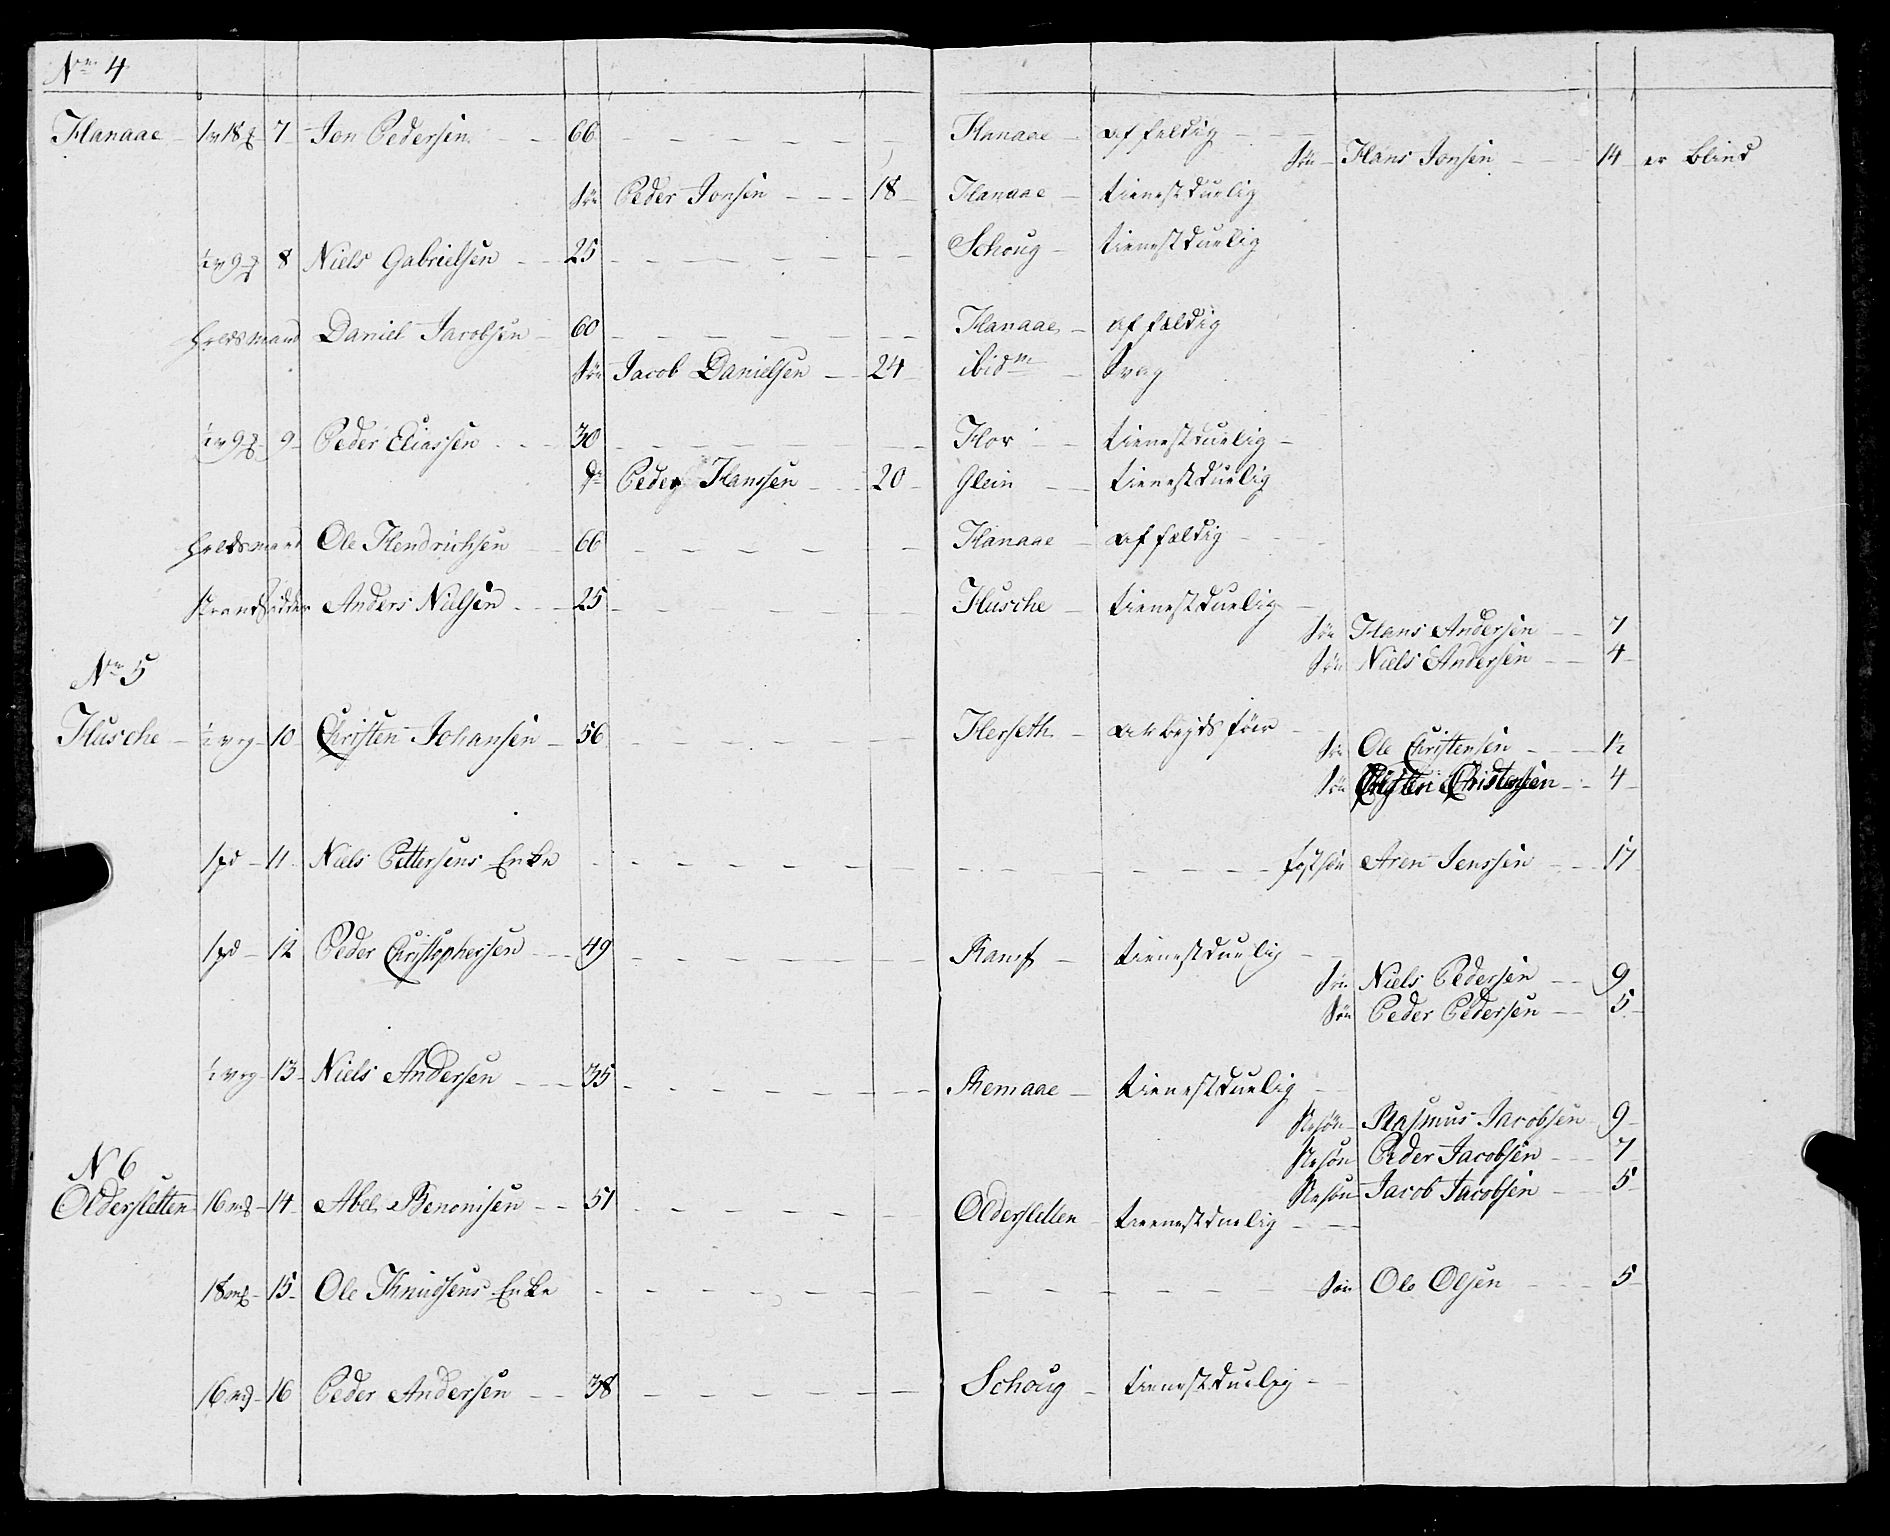 No 4
Hanaae 1 v 18 7 Jon Pedersen 66 Hanaae affeldig
Søn Hans Jonsen 14 er blind
Søn Peder Jonsen 18 Hanaae tienestduelig
8 Niels Gabrielsen 25 Schoug tienestduelig
Holdsmand Daniel Jacobsen 60 Hanaae affældig
Søn Jacob Danielsen 24 ibidm Svag
9 Peder Eliassen 30 Hov tienestduelig
Dr Peder Hanssen 20 Glein tienestduelig
Holdsmand Ole Hendrichsen 66 Hanaae affældig
Strandsidder Anders Nielsen 25 Husche tienestduelig
Søn Hans Andersen 7
Søn Niels Andersen 4
No 5
Husche 10 Christen Johansen 56 Herseth arbeydsføer
Søn Ole Christensen 12
Søn Christen Christensen 4
1 pd 11 Niels Pettersens Enke Fostsøn Aren Jenssen 17
1 pd 12 Peder Christophersen 49 Ramf tienestduelig
Søn Niels Pedersen 9
Søn Peder Pedersen 5
13 Niels Andersen 35 Remaae tienestduelig
Stesøn Rasmus Jacobsen 9
Stesøn Peder Jacobsen 7
Stesøn Jacob Jacobsen 5
N 6
Oldersletten 16 14 Abel Benonisen 51 Oldersletten tienestduelig
18 15 Ole Knudsens Enke Søn Ole Olsen 5
16 16 Peder Andersen 38 Schoug tienestduelig